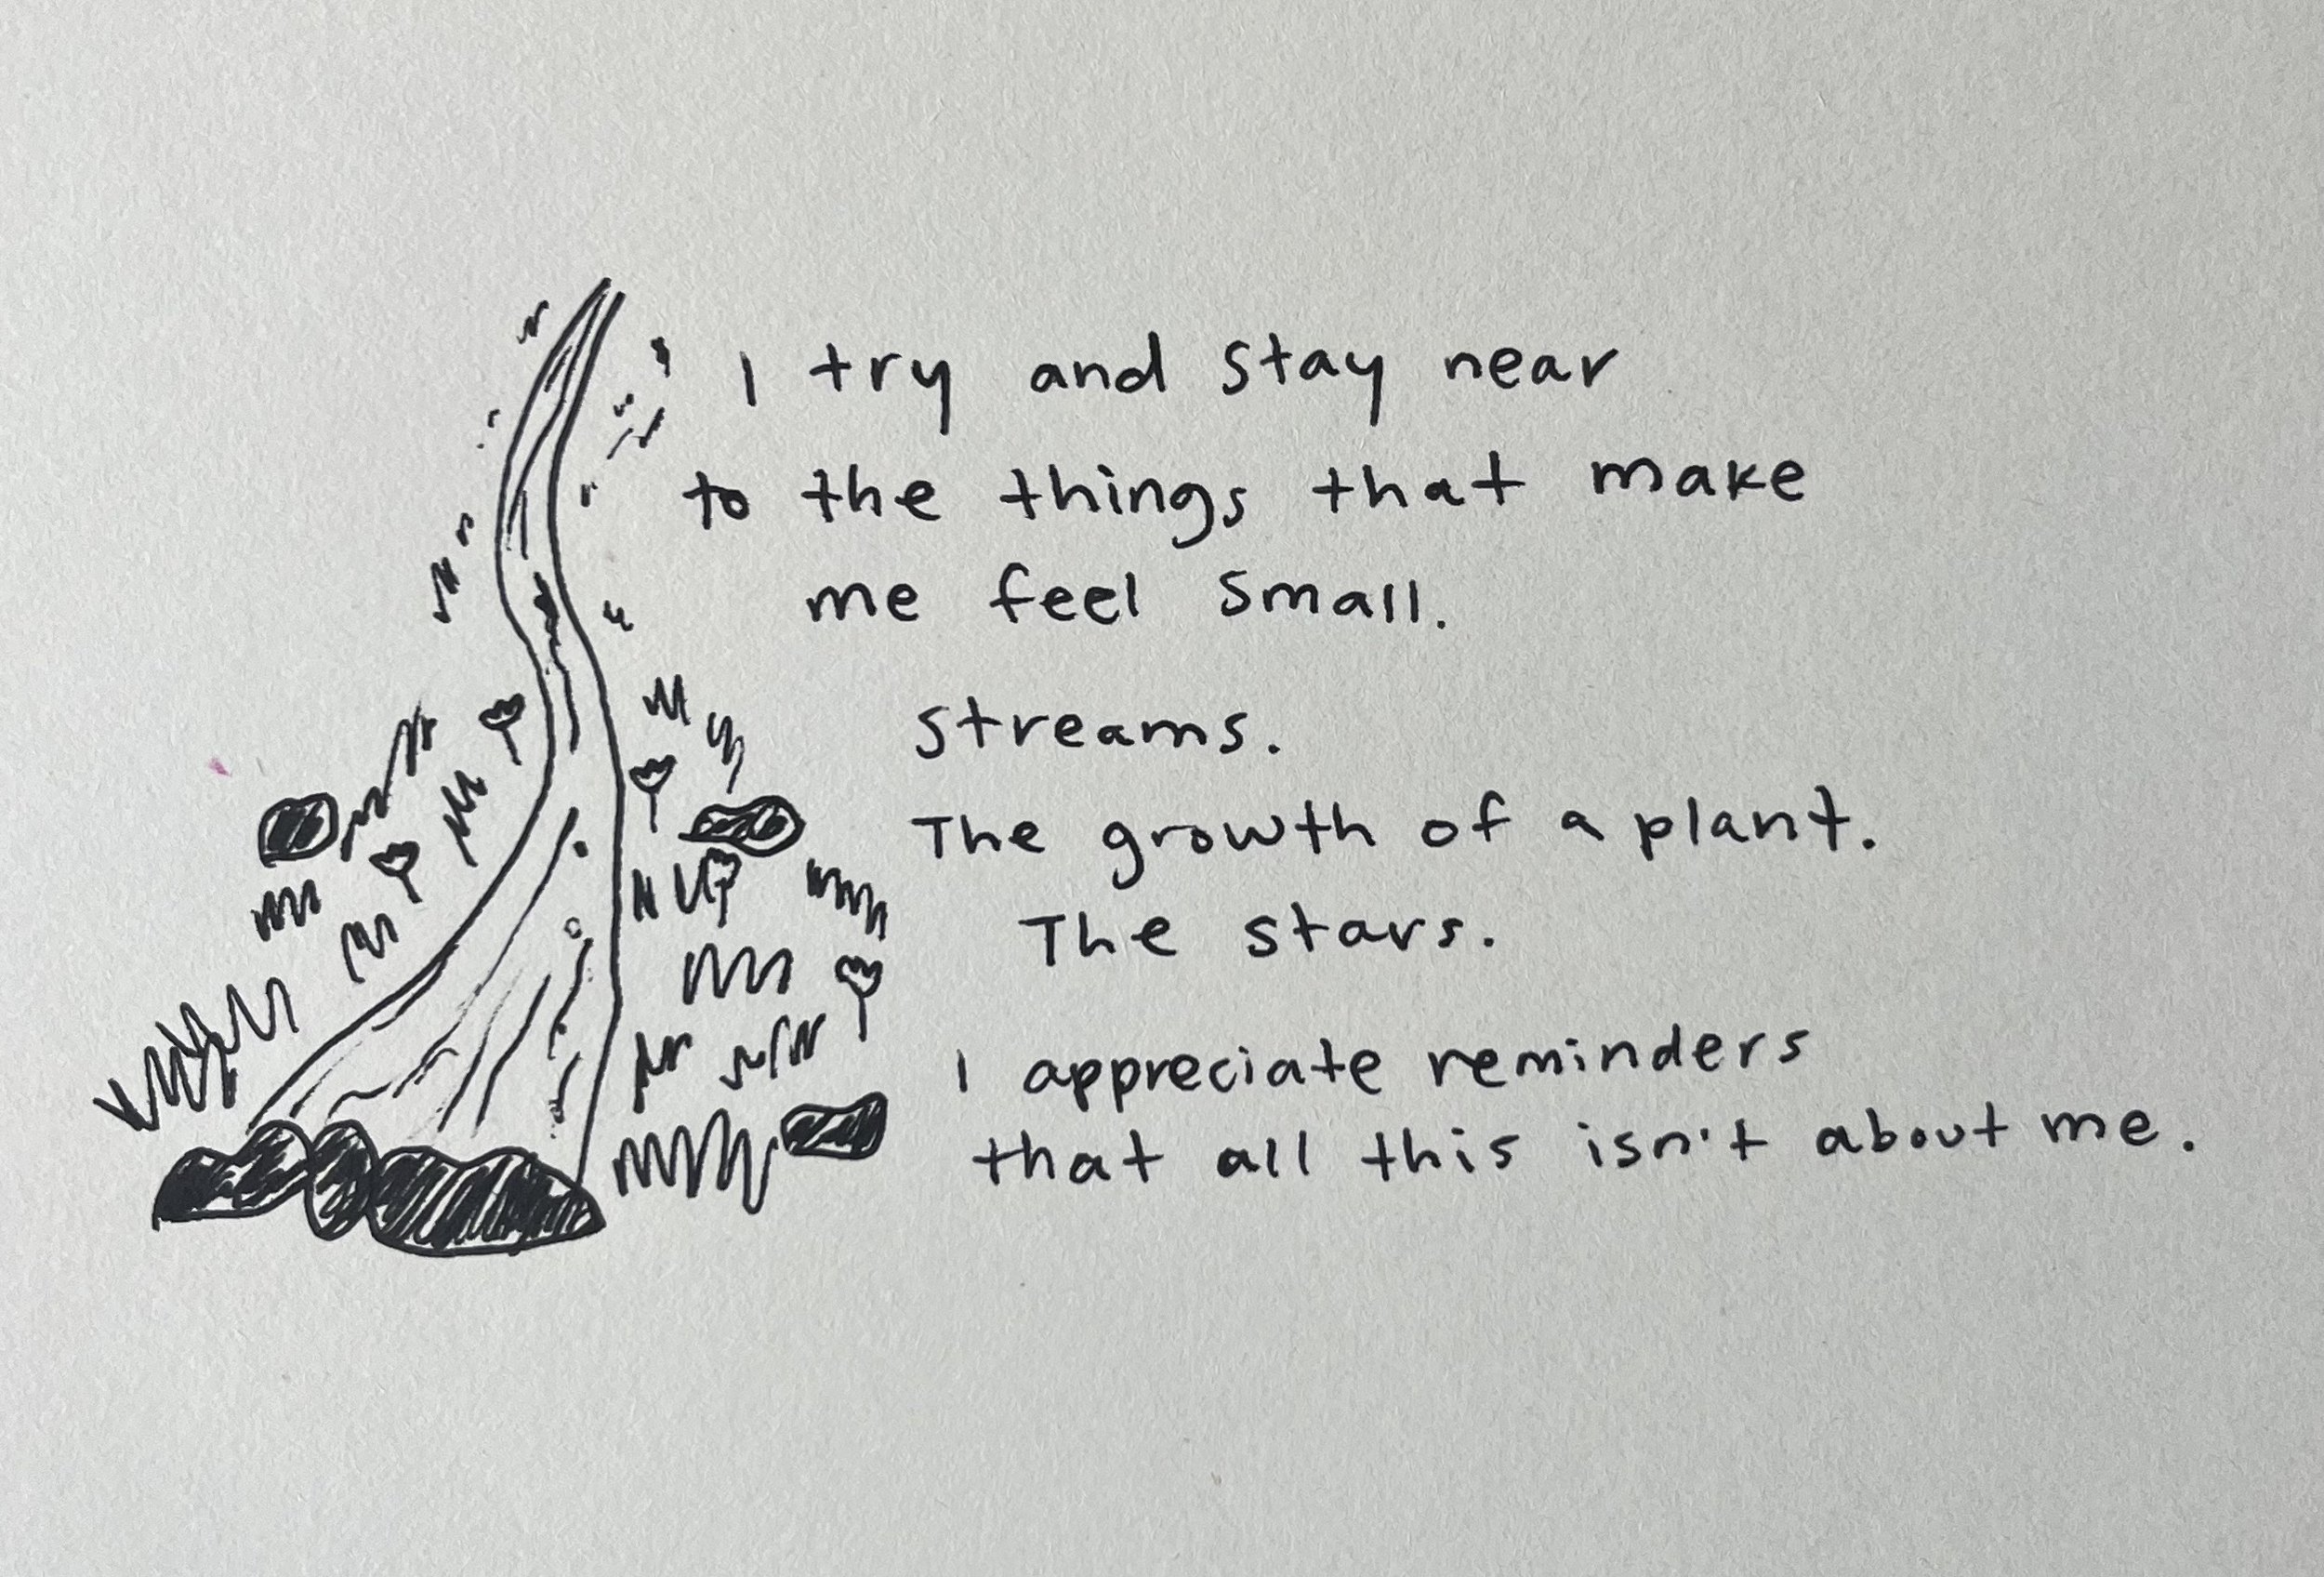 I try and stay near
to the things that make
me feel small.
Streams.
The growth of a plant.
The stars.
I appreciate reminders
that all this isn't about me.